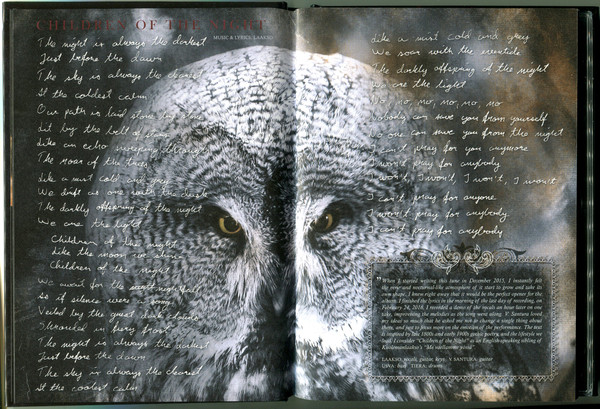 CHILDREN OF THE NIGHT
MUSIC & LYRICS: LAAKSO
The night is always the darkest
Just before the dawn
The sky is always the clearest
At the coldest calm
Our path is laid stone by stone
Lit by the belt of
Like an echo sweeping through
The roar of the trees
Like a mist cold and grey
We drift as one
The darkly offspring of the night
We are the light
Children of the night
Like the moon we shine
Children of the night
We await for the nightfall
As if silence were a
Veiled by the great dark
Shrouded in
The night is always the darkest
Just before the dawn
The sky is always the clearest
At the coolest calm
Like a mist cold and grey
We soar with the eventide
The darkly offspring of the night
We are the light
No, no, no, no, no, no
Nobody can save you from yourself
No one can save you from the night
I can't pray for you anymore
I won't pray for anybody
I won't, I won't, I won't, I won't
I can't pray for anyone
I won't pray for anybody
I can't pray for anybody
"When I started writing this tune in December 2015, I instantly felt
the eerie and nocturnal-like atmosphere of it start to grow and take its
own shape. I knew right away that it would be the perfect opener for the
album. I finished the lyrics in the morning of the last day of recording, on
February 24, 2016. I recorded a demo of the vocals an hour later on one
take, improvising the melodies as the song went along. V. Santura loved
my ideas so much that he asked me not to change a single thing about
them, and just to focus more on the emotion of the performance. The text
is inspired by late 1800s and early 1900s gothic poetry, and the lifestyle we
lead. I consider "Children of the Night" as an English-speaking sibling of
Kuolemanlaakso's "Me vaellamme yössä"."
LAAKSO: vocals, guitar, keys V. SANTURA: guitar
USVA: bass TIERA: drums